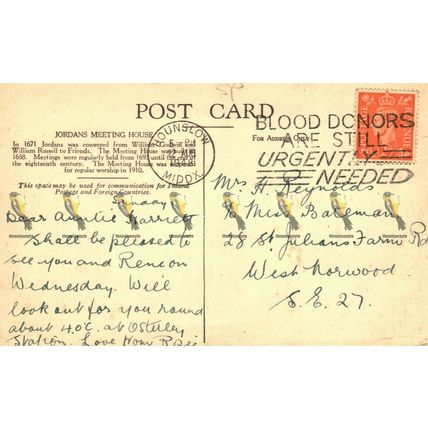 POST CARD
JORDANS MEETING HOUSE
In 1671 Jordans was conveyed from William Godwin and
William Russell to Friends. The Meeting House was built in
1688. Meetings were regularly held from 1692 until the end of
the eighteenth century. The Meeting House was
for regular worship in 1910.
This space may be used for communication for Inland
Postage and Foreign Countries.
For Address Only.
HOUNSLOW
MIDDX
BLOOD DONORS
ARE STILL
URGENTLY
NEEDED
REVENUE
Dear Auntie Harriett
Shall be pleased to
see you and Rene on
Wednesday. Will
look out for you round
about 4.0c. at Osterley
Station. Love from
Mrs H. Reynolds
c/o Miss Bateman
28 St Julians Farm Rd
West Norwood.
S.E. 27.